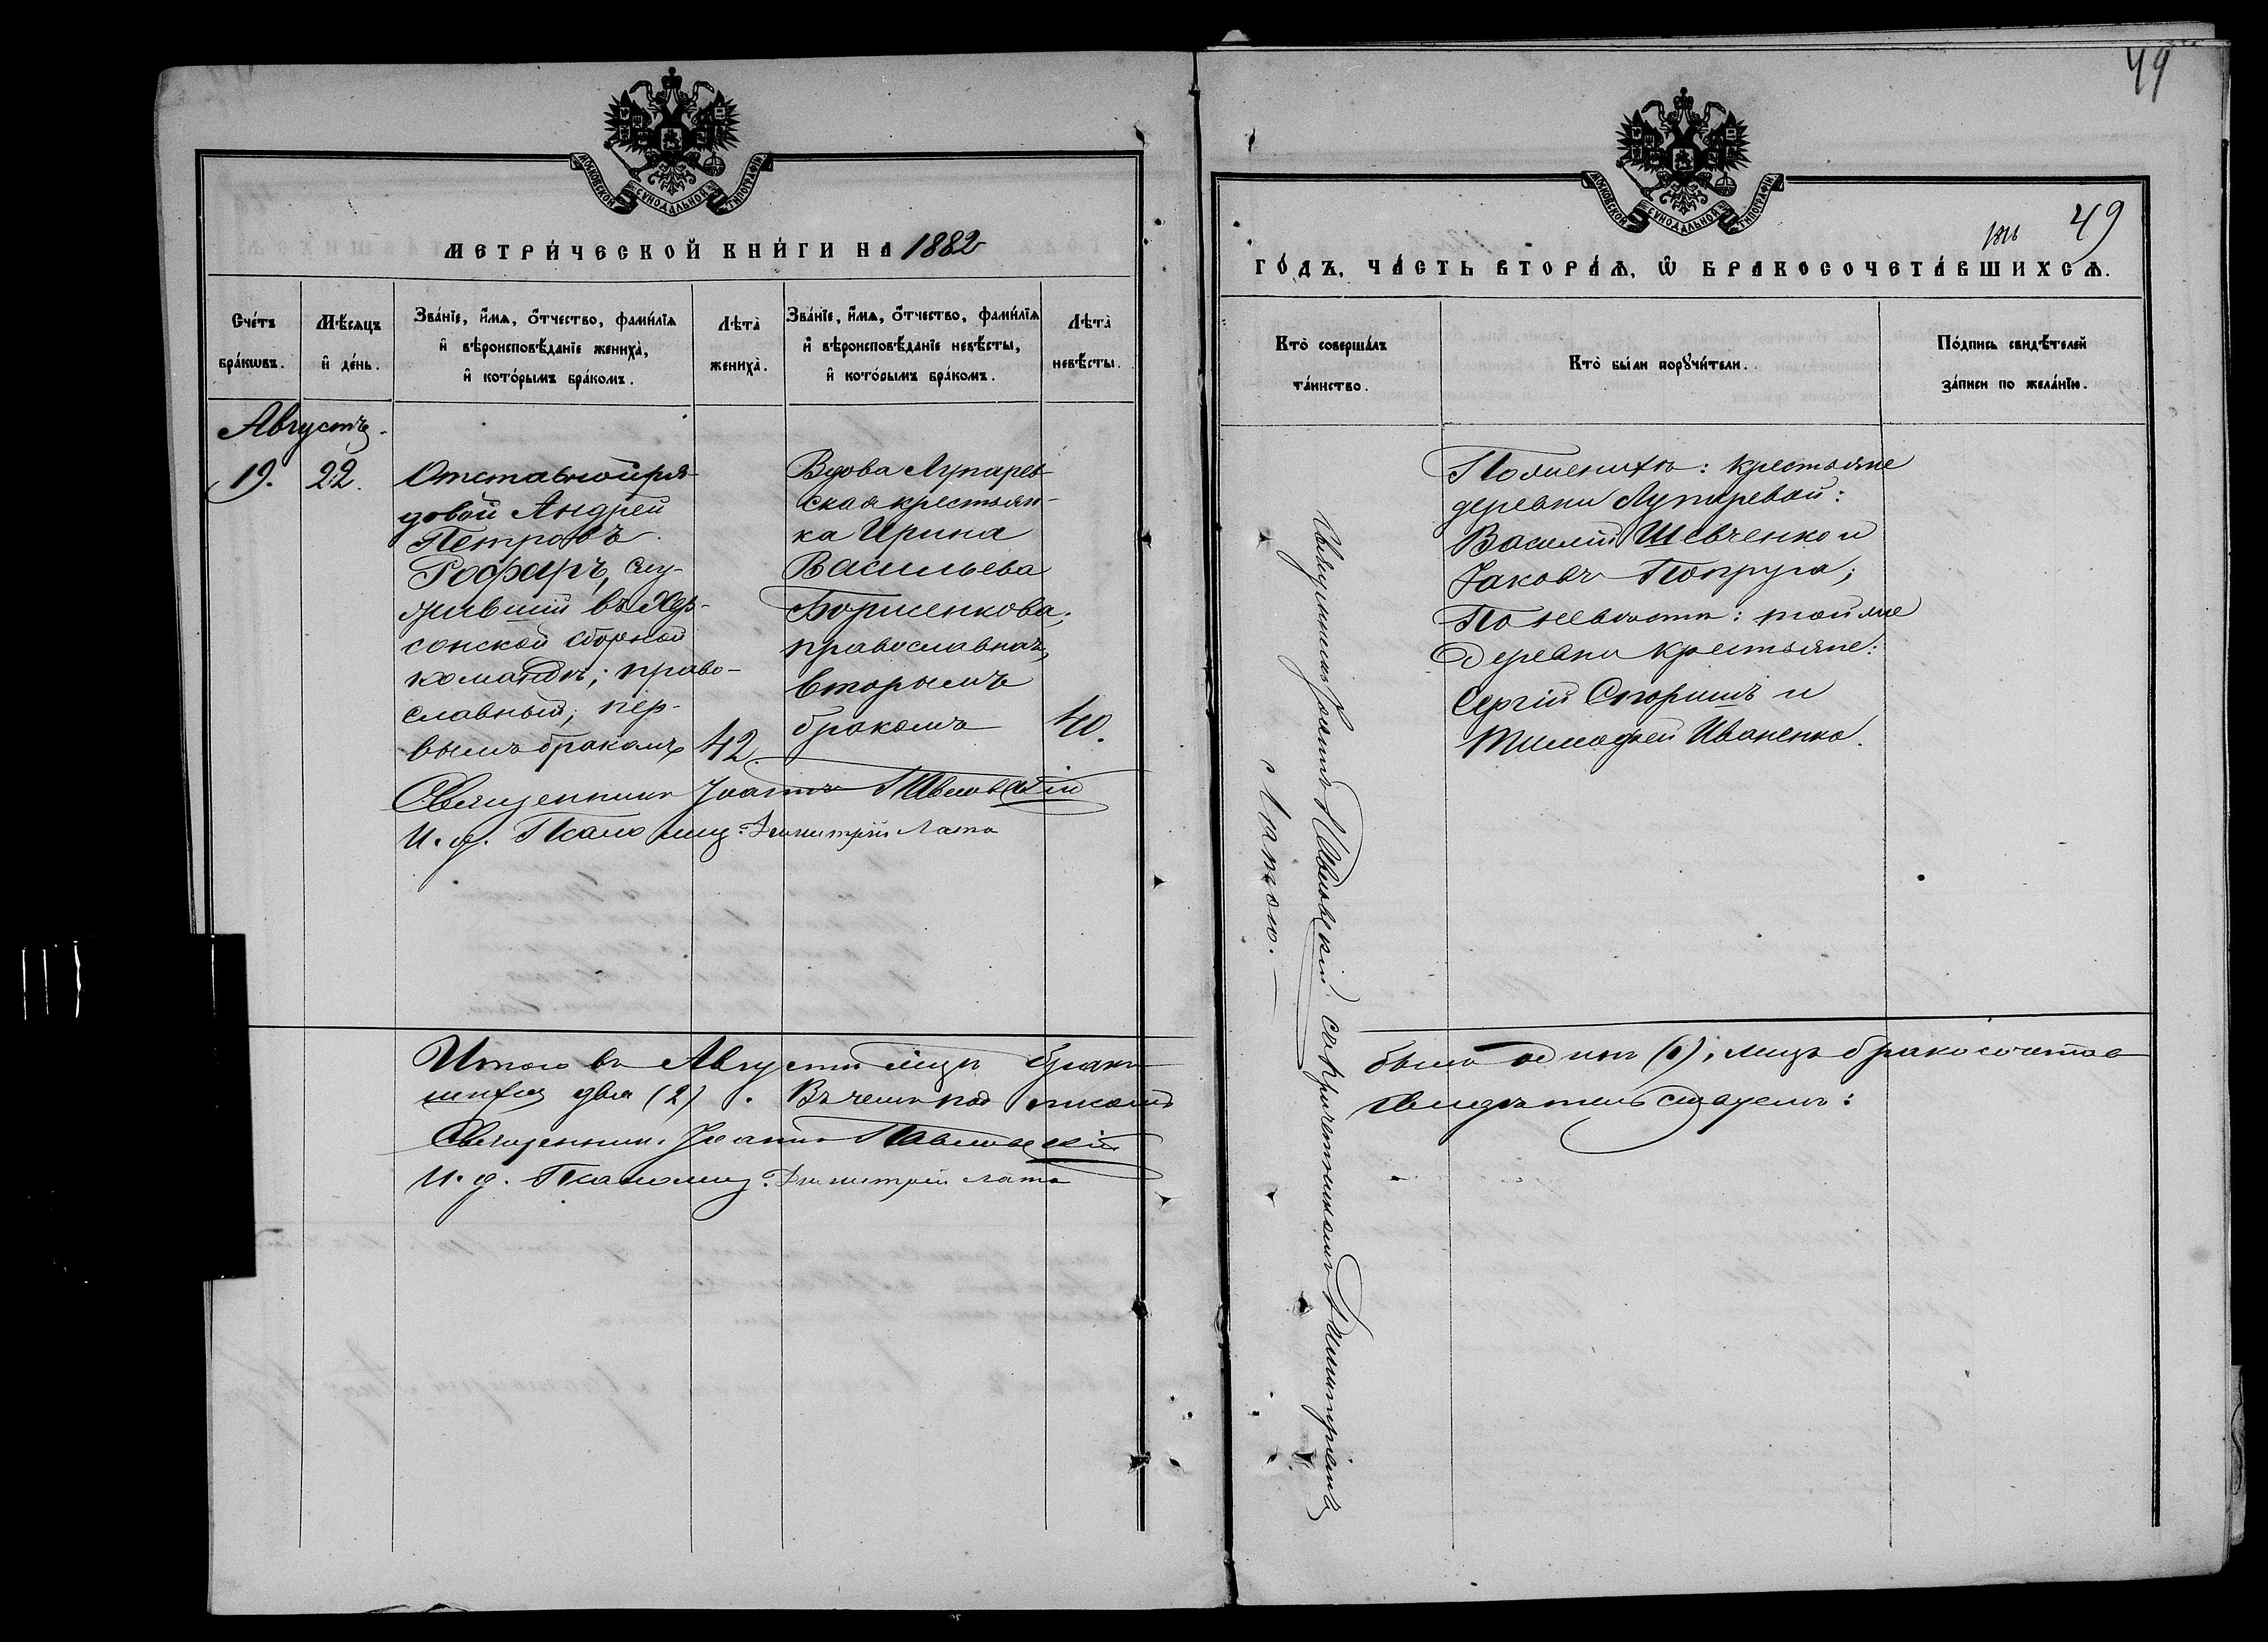 МОСКОВСКОЙ СѴНОДАЛЬНОЙ ТИПОГРАФІИ
МЕТРИ́ЧЕСКОЙ КНИ́ГИ НА 1882
Сче́тъ бра́кѡвъ.
Мѣ́сяцъ и҆ де́нь.
Зва́нїе, и҆́мѧ, ѻ҆́тчество, фами́лїѧ
и҆ вѣроисповѣ́данїе жениха̀,
и҆ кото́рымъ бра́комъ.
Лѣта̀ жениха̀.
Зва́нїе, и҆́мѧ, ѻ҆́тчество, фами́лїѧ
и҆ вѣроисповѣ́данїе невѣ́сты,
и҆ кото́рымъ бра́комъ.
Лѣта̀ невѣ́сты.
Августъ.
19. 22.
Отставной ря-
довой Андрей
Петровъ
Рофаръ, слу-
жившій въ Хер-
сонской сборной
командѣ; право-
славный; пер-
вымъ бракомъ 42.
Вдова Лупарев-
ская крестьян-
ка Ирина
Васильева
Борисенкова;
православная,
вторымъ
бракомъ 40.
Священникъ Іоаннъ Павловскій
И. д. Псаломщ. Димитрій Лата
Итого въ Августѣ мцѣ брако
шихся два (2). Въ чемъ под писомъ
Священник. Іоаннъ Павловскій
И. д. Псаломщ. Димитрій Лата
49
МОСКОВСКОЙ СѴНОДАЛЬНОЙ ТИПОГРАФІИ
49
ГО́ДЪ, ЧА́СТЬ ВТОРА́Ѧ, Ѽ БРАКОСОЧЕТА́ВШИХСѦ.
Кто̀ соверша́лъ
та́инство.
Кто̀ бы́ли порꙋчи́тели.
По́дпись свидѣ́телей
за́писи по жела́нїю.
Іоаннъ Павловскій съ Причетникомъ Димитріемъ
Латою.
По женихѣ: крестьяне
деревни Лупаревой:
Василій Шевченко и
Іаковъ Попруга;
По невѣстѣ: той же
деревни крестьяне:
Сергій Сторишъ и
Тимофей Иваненко.
было одинъ (1), лицъ бракосочетав
свидѣтельствуемъ: